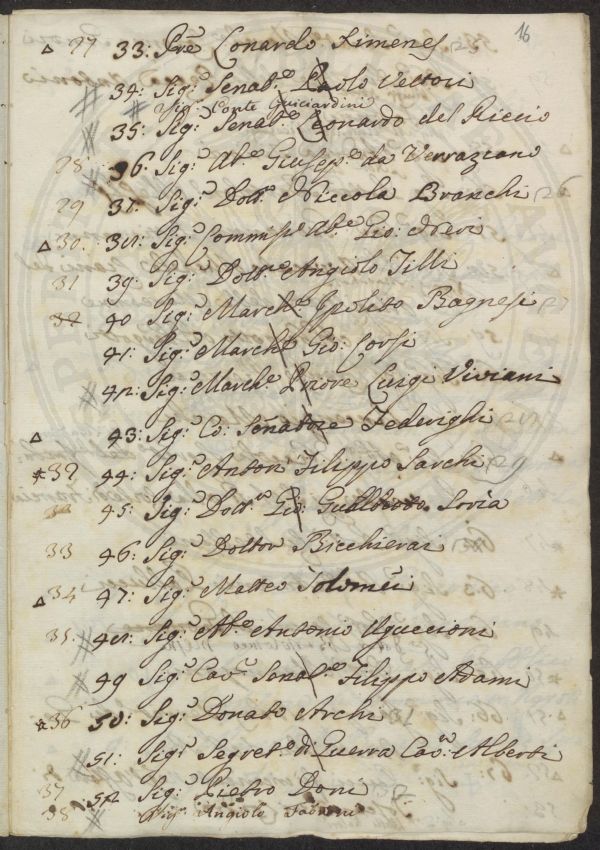 16
27 33: Pre Leonardo Ximenes
34: Sig.r Senat.e Paolo Vettori
Sig.r Conte Guiciardini
35: Sig.r Senat.e Leonardo del Riccio
28 36: Sig.r Ab.e Giusep.e da Verrazzano
29 37: Sig.r Dott.e Niccola Branchi 26
30. 38: Sig.r Commis.o Ab.e Gio: Neri
31 39: Sig.r Dott.re Angiolo Tilli
32 40 Sig.r March.e Ipolito Bagnesi
41: Sig.r March.e Gio: Corsi
42: Sig.r March.e Priore Luigi Viviani
43: Sig.r Co: Senatore Federighi
32 44: Sig.r Anton Filippo Sarchi
45: Sig.r Dott.re Gio: Gualberto Soria
33 46: Sig.r Dottor Bicchierai
34 47: Sig.r Matteo Tolomei
35. 48: Sig.r Ab.e Antonio Uguccioni
49 Sig.r Cav.r Senat.e Filippo Adami
36 50: Sig.r Donato Archi
51: Sig.r Segret.o di Guerra Cav.re Alberti
37 52 Sig.r Pietro Doni
38 Sig.r Angiolo Fabroni